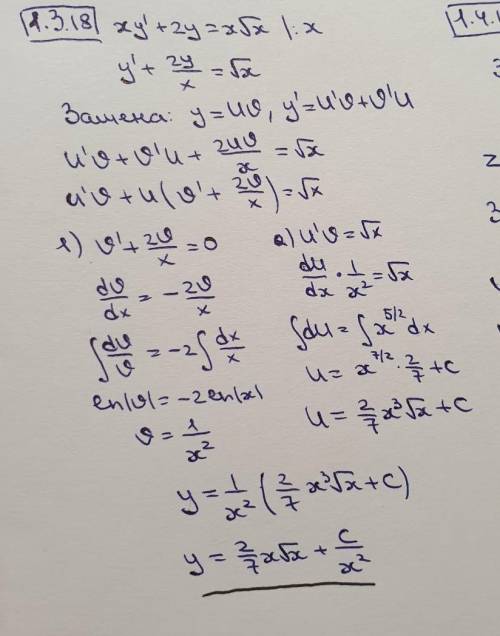 1.3.18 xy' + 2y = x√x |:x
y' + 2y/x = √x
Замена: y = uv, y' = u'v + v'u
u'v + v'u + 2uv/x = √x
u'v + u(v' + 2v/x) = √x
1) v' + 2v/x = 0
dv/dx = -2v/x
∫dv/v = -2∫dx/x
ln|v| = -2ln|x|
v = 1/x²
2) u'v = √x
du/dx · 1/x² = √x
∫du = ∫x^(5/2) dx
u = x^(7/2) · 2/7 + c
u = 2/7 x³√x + c
y = 1/x² (2/7 x³√x + c)
y = 2/7 x√x + c/x²